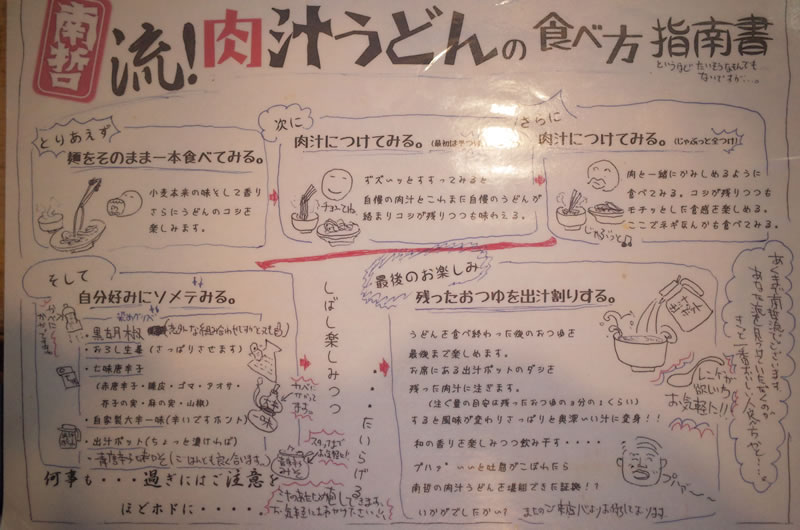 南哲
流!肉汁うどんの食べ方指南書
というほどたいそうなもんでも
ないですが…。
とりあえず
麺をそのまま一本食べてみる。
小麦本来の味そして香り
さらにうどんのコシを
楽しみます。
次に
肉汁につけてみる。
ズズぃッとすすってみると
自慢の肉汁とこれまた自慢のうどんが
絡まりコシが残りつつも味わえる。
チョこっとね
さらに
肉汁につけてみる。(じゃぶっと全つけ)
肉と一緒にかみしめるように
食べてみる。コシが残りつつも
モチッとした食感を楽しめる。
ここでネギなんかも食べてみる。
じゃぶっと♫
そして
自分好みにソメテみる。
・黒胡椒
・おろし生姜(さっぱりさせます)
・七味唐辛子
(赤唐辛子・陳皮・ゴマ・アオサ・
芥子の実・麻の実・山椒)
・自家製大辛一味(辛いですホント)
・出汁ポット(ちょっと濃ければ)
何事も・・・過ぎにはご注意を
ほどホドに・・・・
一味
しばし楽しみつつ
・・・たいらげる
最後のお楽しみ
残ったおつゆを出汁割りする。
うどんを食べ終わった後のおつゆを
最後まで楽しめます。
お席にある出汁ポットのダシを
残った肉汁に注ぎます。
(注ぐ量の目安は残ったおつゆの3分の1くらい)
すると風味が変わりさっぱりと奥深いい汁に変身!!
和の香りを楽しみつつ飲み干す・・・・
プハァ~いいと吐息がこぼれたら
南哲の肉汁うどんを堪能できた証拠!?
いかがでしたか?
出汁ポット
レンゲが
欲しい方
お気軽に!!
プハァ〜
あくまで南哲流でございます